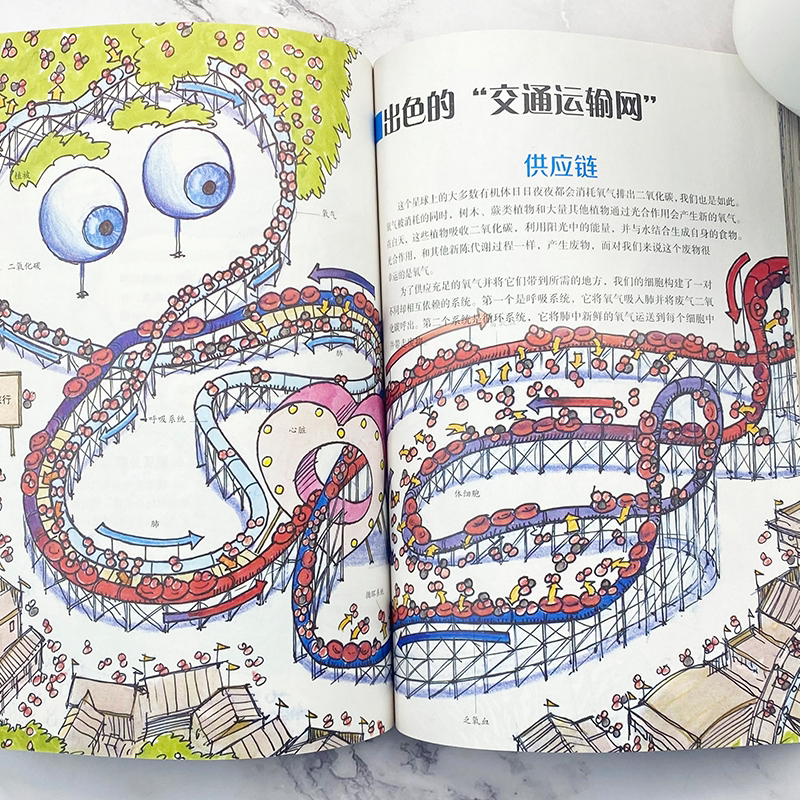 植被
氧气
二氧化碳
肺
行
呼吸系统
心脏
肺
循环系统
出色的“交通运输网”
供应链
这个星球上的大多数有机体日日夜夜都会消耗氧气排出二氧化碳,我们也是如此。
氧气被消耗的同时,树木、蕨类植物和大量其他植物通过光合作用会产生新的氧气。
在白天,这些植物吸收二氧化碳,利用阳光中的能量,并与水结合生成自身的食物。
光合作用,和其他新陈代谢过程一样,产生废物,而对我们来说这个废物很
幸运的是氧气。
为了供应充足的氧气并将它们带到所需的地方,我们的细胞构建了一对
不同却相互依赖的系统。第一个是呼吸系统,它将氧气吸入肺并将废气二氧
化碳呼出。第二个系统是循环系统,它将肺中新鲜的氧气运送到每个细胞中
体细胞
乏氧血